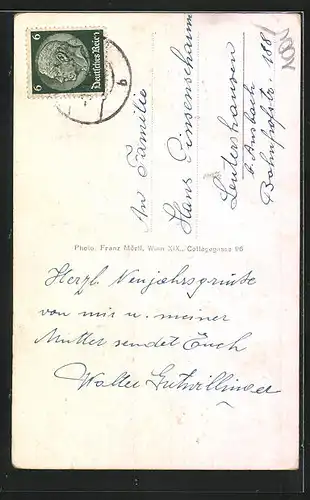 6 Deutsches Reich 6
An Familie
Hans Pinsenschaum
Leutershausen
b. Ansbach
Bahnhofstr. 188
Photo. Franz Mörtl, Wien XIX., Cottagegasse 86
Herzl. Neujahrsgrüße
von mir u. meiner
Mutter sendet Euch
Walter Gutwillinger